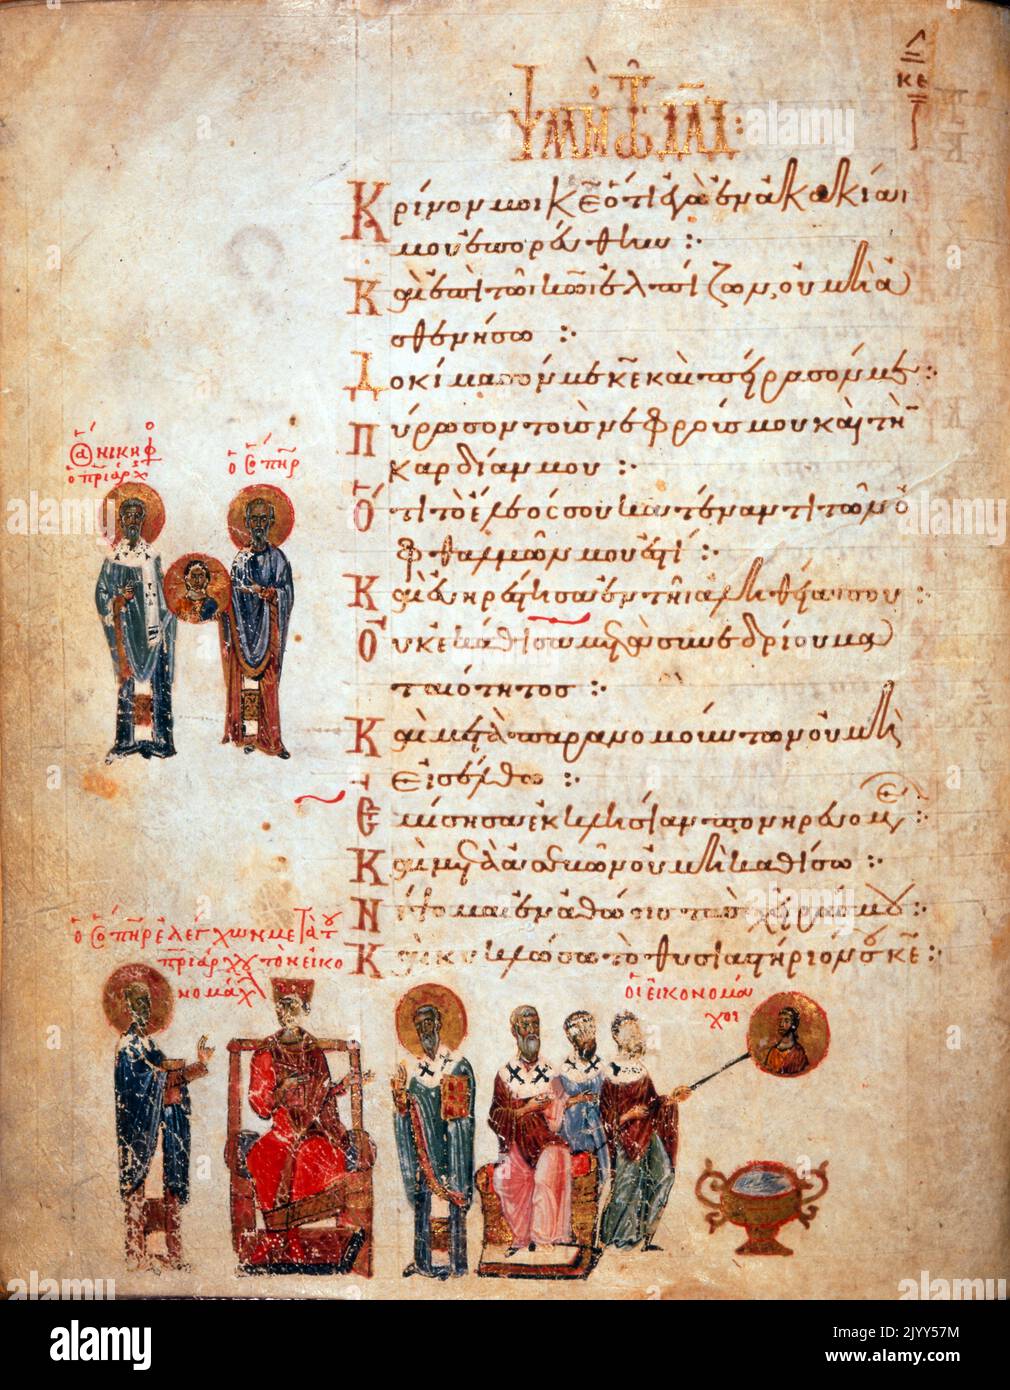 κε
τῶ δᾱδ :
Κρίνον μοι κ̅ε̅ ὅτι ἐγὼ ἐν ἀκακίαι
μου ἐπορεύθην :
Καὶ ἐπὶ τῶι κ̅ω̅ι ἐλπίζων, οὐ μὴ ἀ
σθενήσω :
Δοκίμασόν με κ̅ε̅ καὶ πείρασόν με :
Πύρωσον τοὺς νεφρούς μου καὶ τὴν
καρδίαν μου :
Ὅτι τὸ ἔλεός σου κατέναντι τῶν ὀ
φθαλμῶν μου ἐστί :
Καὶ εὐηρέστησα ἐν τῆι ἀληθείαι σου
Οὐκ ἐκάθισα μετὰ συνεδρίου μα
ταιότητος :
Καὶ μετὰ παρανομούντων οὐ μὴ
εἰσέλθω :
Ἐμίσησα ἐκκλησίαν πονηρευομέ
Καὶ μετὰ ἀσεβῶν οὐ μὴ καθίσω :
Νίψομαι ἐν ἀθώοις τὰς χεῖρας μου :
Καὶ κυκλώσω τὸ θυσιαστήριόν σου κ̅ε̅ :
ὁ ἅ νικηφ
ὁ πριάρχ
ὁ ὅ π̅η̅ρ
ὁ ὅ π̅η̅ρ ἐλέγχων μετὰ τοῦ
πριάρχου τὸν εἰκο
νομάχ
οἱ εἰκονομά
χοι
alamy
Image ID: 2JYY57M
www.alamy.com